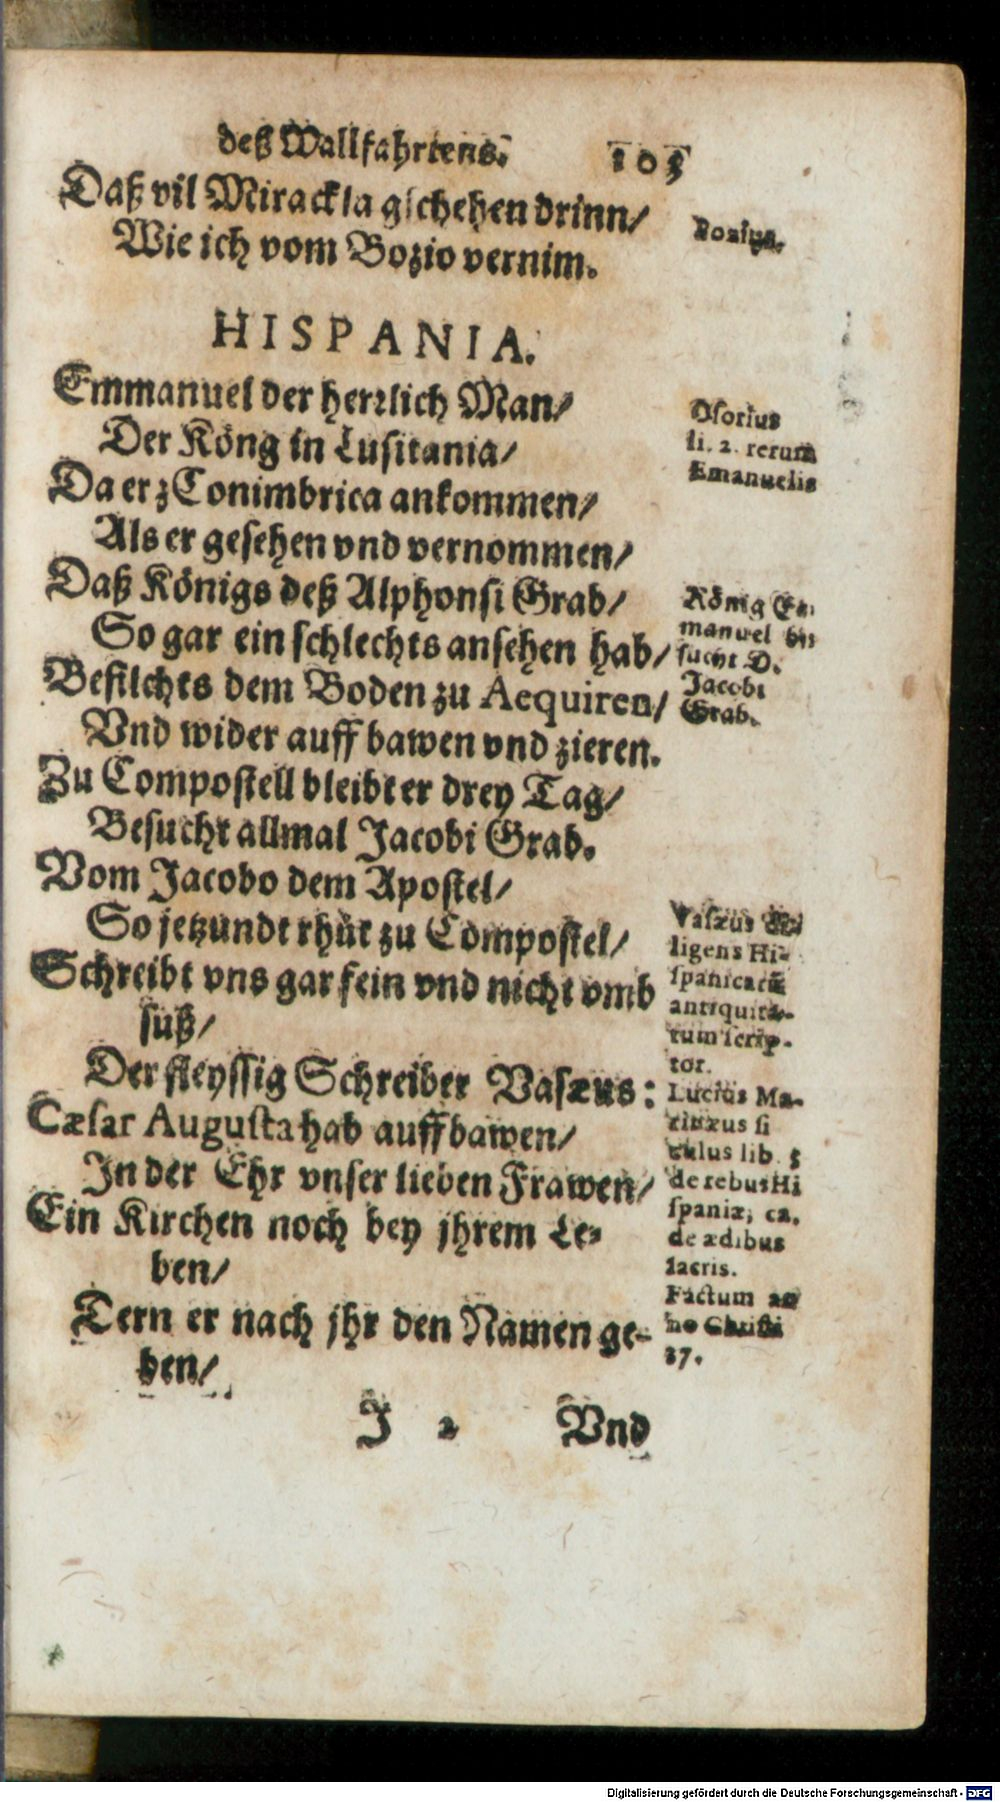 deß Wallfahrtens. 103
Daß vil Mirackla gschehen drinn/
Wie ich vom Bozio vernim.
Bozius.
HISPANIA.
Emmanuel der herꝛlich Man/
Der Köng in Lusitania/
Da er z Conimbrica ankommen/
Als er gesehen vnd vernommen/
Daß Königs deß Alphonsi Grab/
So gar ein schlechts ansehen hab/
Befilchts dem Boden zu Aequiren/
Vnd wider auff bawen vnd zieren.
Zu Compostell bleibt er drey Tag/
Besucht allmal Jacobi Grab.
Vom Jacobo dem Apostel/
So jetzundt rhüt zu Compostel/
Schreibt vns gar fein vnd nicht vmb
suß/
Der fleyssig Schreiber Vasæus:
Cæsar Augusta hab auffbawen/
In der Ehr vnser lieben Frawen/
Ein Kirchen noch bey jhrem Le-
ben/
Tern er nach jhr den Namen ge-
ben/
Osorius
li. 2. rerum
Emanuelis
König Em
manuel be
sucht D.
Jacobi
Grab.
Vasæus di
ligens Hi-
spanicarū
antiquita-
tum scrip-
tor.
Lucius Ma-
rinæus si
culus lib. 5
de rebus Hi
spaniæ, ca.
de ædibus
sacris.
Factum an
no Christi
37.
J 2 Vnd
Digitalisierung gefördert durch die Deutsche Forschungsgemeinschaft - DFG